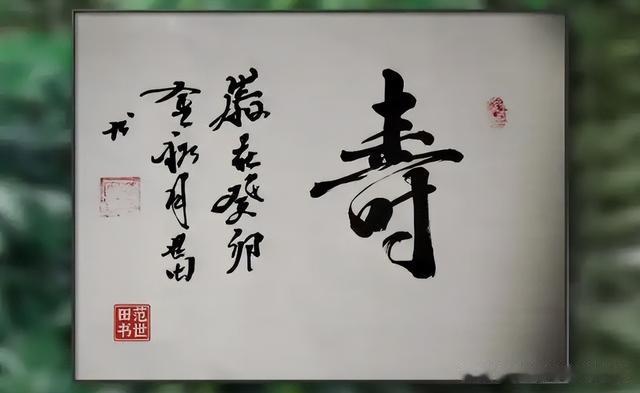 寿
歲在癸卯
金秋月世田
书
范世
田书